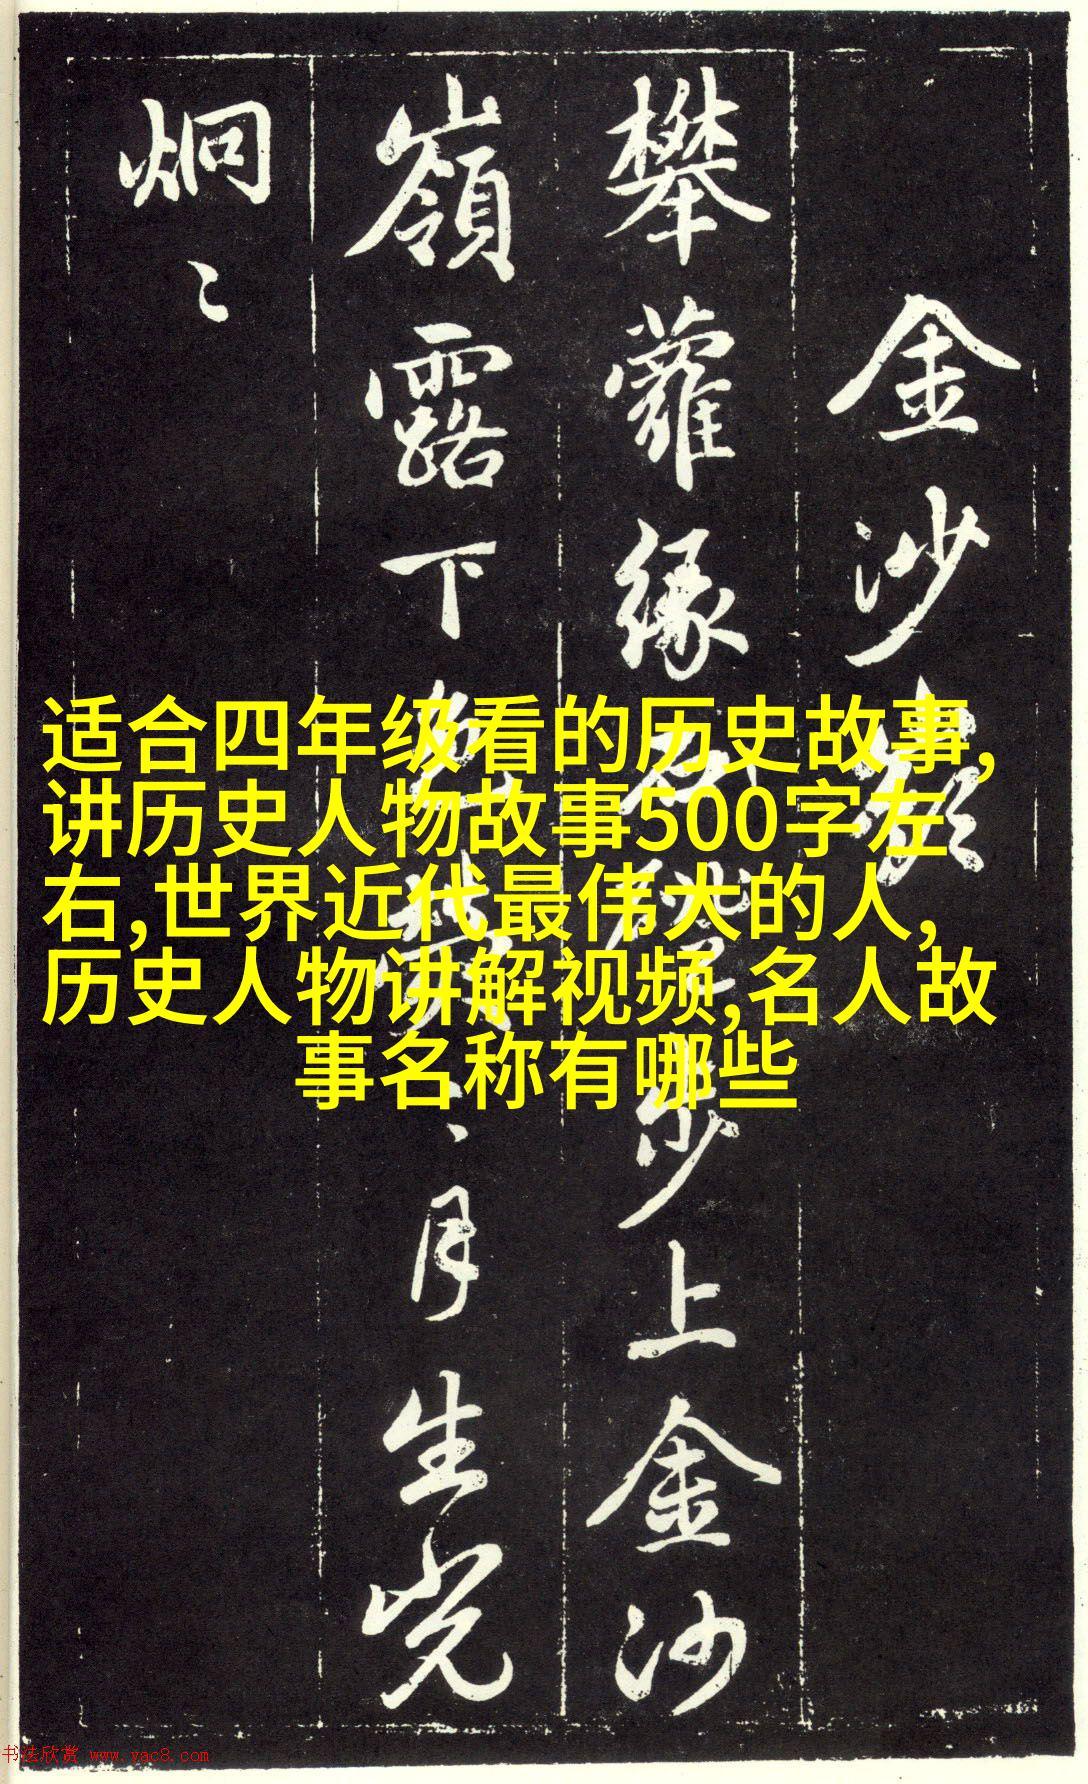 金沙
攀蘿緣石步上金沙
嶺露下月生光
炯〻
适合四年级看的历史故事,
讲历史人物故事500字左
右,世界近代最伟大的人,
历史人物讲解视频,名人故
事名称有哪些
书法欣赏 www.yac8.com